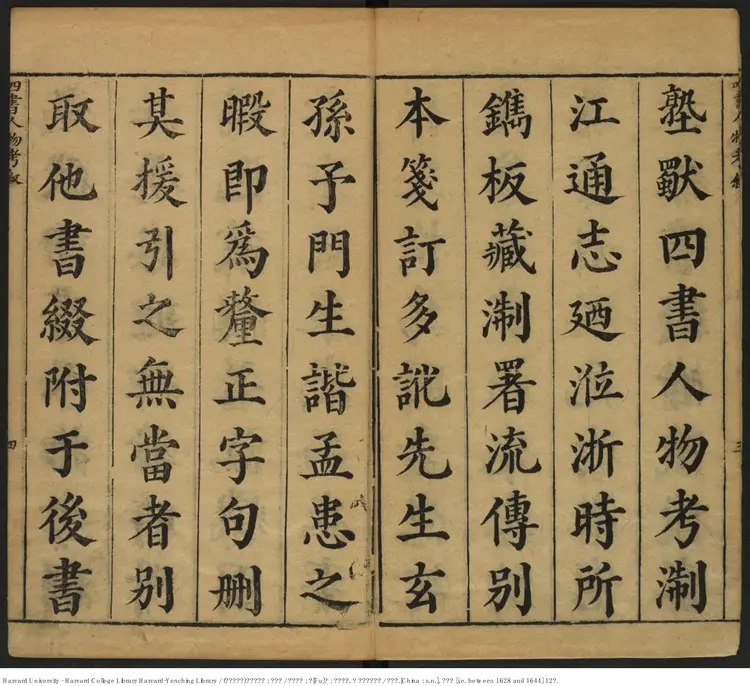 塾獸四書人物考淛
江通志廼涖浙時所
鐫板藏淛署流傳別
本箋訂多訛先生玄
孫予門生諧孟患之
暇即爲釐正字句刪
其援引之無當者別
取他書綴附于後書
四書人物考敘
四
三
Harvard University - Harvard College Library Harvard-Yenching Library / (?????)????? : ??? / ???? : ?[Fu]? : ????. ? ?????? / ???.[China : s.n.], ??? [i.e. between 1628 and 1644] 12?.